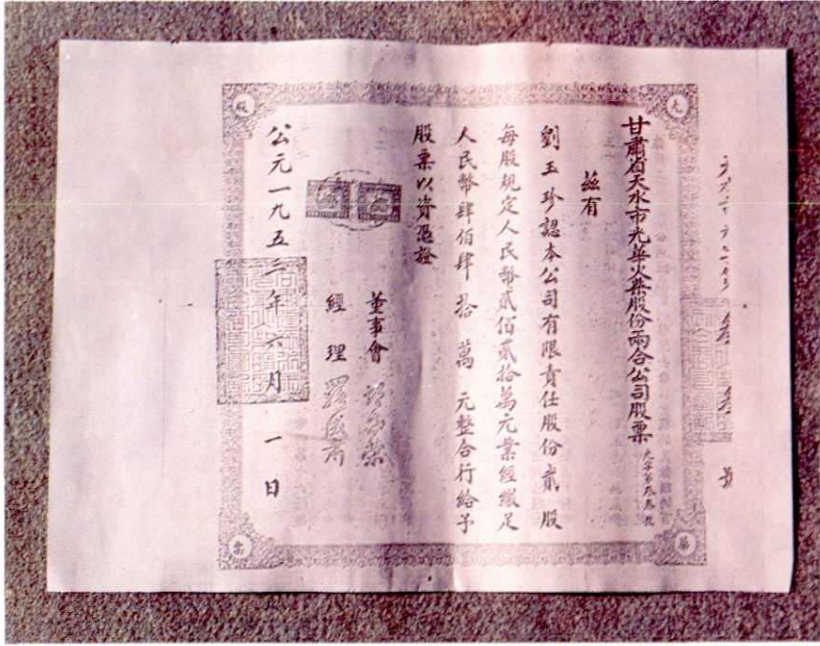 甘肅省天水市光華火柴股份兩合公司股票
光字第叁叁號
茲有
劉玉珍認本公司有限責任股份貳股
每股規定人民幣貳佰貳拾萬元業經繳足
人民幣肆佰肆拾萬元整合行給予
股票以資憑證
董事會
經理
公元一九五三年六月一日
光
華
股
票